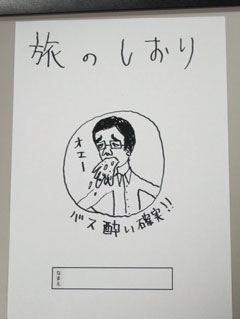 旅のしおり
オエー
バス酔い確実!!
なまえ